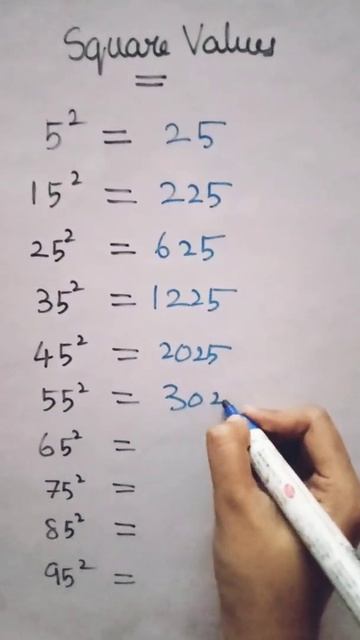 Square Values
=
5² = 25
15² = 225
25² = 625
35² = 1225
45² = 2025
55² = 302
65² =
75² =
85² =
95² =